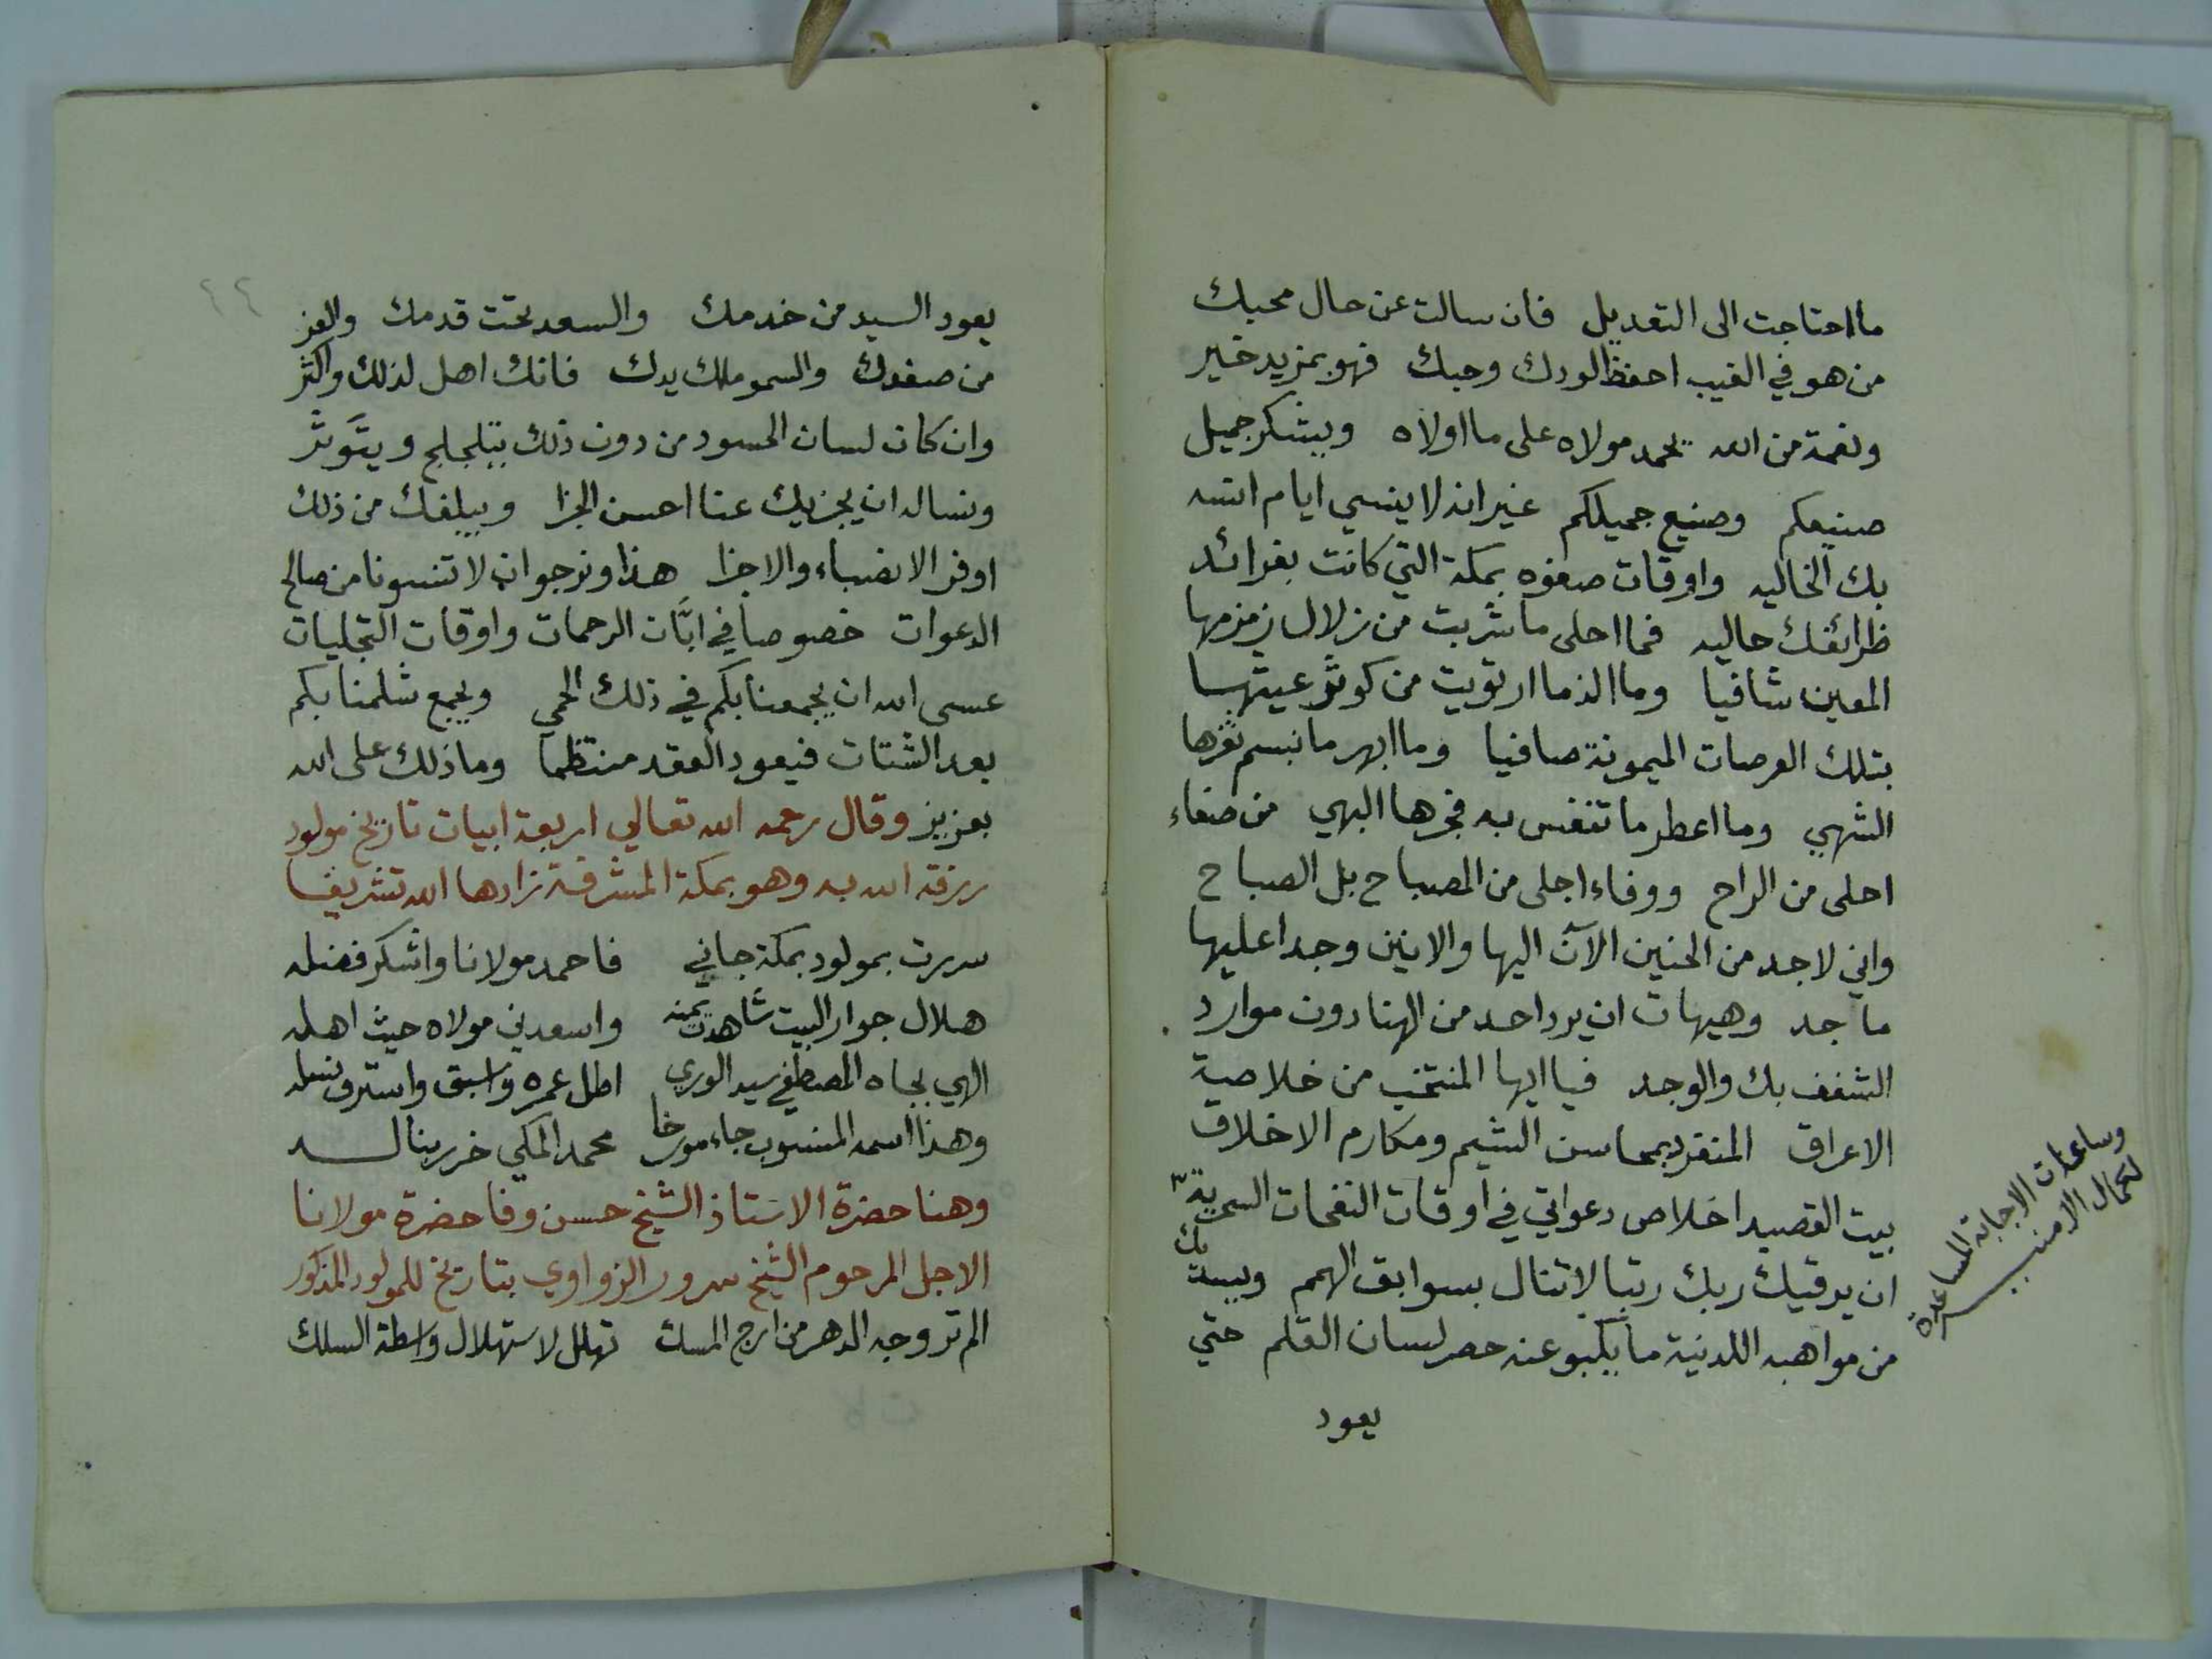 ما احتاجت الى التعديل فان سالت عن حال محبك
من هو في الغيب احفظ لودك وحبك فهو بمزيد خير
ونعمة من الله يحمد مولاه على ما اولاه ويشكر جميل
صنيعكم وصنيع جميلكم غير انه لا ينسي ايام انسه
بك الخاليه واوقات صفوه بمكة التي كانت بفرائد
ظرائفك حاليه فما احلى ما شربت من زلال زمزمها
المعين شافيا وما الذ ما ارتويت من كوثر عيتها
بتلك العرصات الميمونة صافيا وما ابهر ما نبسم ثغرها
الشهي وما اعطر ما تنفس به فجرها البهي من صفاء
احلى من الراح ووفاء اجلى من المصباح بل الصباح
واني لاجد من الحنين الآن اليها والانين وجدا عليها
ما جد وهيهات ان يرد احد من الهنا دون موارد
الشغف بك والوجد فيا ايها المنتخب من خلاصة
الاعراق المنفرد بمحاسن الشيم ومكارم الاخلاق
بيت القصيد اخلاص دعواتي في اوقات النفحات السحرية
وساعات الاجابة المساعدة
لكمال الامنيه
ان يرقيك ربك رتبا لا تنال بسوابق الهمم ويسديك
من مواهبه اللدنية ما يكبو عنه حصر لسان القلم حتي
يعود
٤٤
يعود السيد من خدمك والسعد تحت قدمك والعز
من صفدك والسمو ملك يدك فانك اهل لذلك واكثر
وان كان لسان الحسود من دون ذلك يتلجلج ويتوثر
ونساله ان يجزيك عنا احسن الجزا ويبلغك من ذلك
اوفر الانصباء والاجزا هذا ونرجو ان لا تنسونا من صالح
الدعوات خصوصا في ابَّان الرحمات واوقات التجليات
عسى الله ان يجمعنا بكم في ذلك الحمي ويجمع شملنا بكم
بعد الشتات فيعود العقد منتظما وما ذلك على الله
بعزيز وقال رحمه الله تعالي اربعة ابيات تاريخ مولود
رزقه الله به وهو بمكة المشرفة زادها الله تشريفا
سررت بمولود بمكة جاني فاحمد مولانا واشكر فضله
هلال جوار البيت شاهدت يمنه واسعدني مولاه حيث اهله
الهي بجاه المصطفي سيد الوري اطل عمره واسبق واستر ونسله
وهذا اسمه المنسوب جاء مورخا محمد المكي خرر بنا له
وهنا حضرة الاستاذ الشيخ حسن وفا حضرة مولانا
الاجل المرحوم الشيخ سرور الزواوي بتاريخ للمولود المذكور
الم تر وجه الدهر من ارج المسك تهلل لاستهلال واسطة السلك